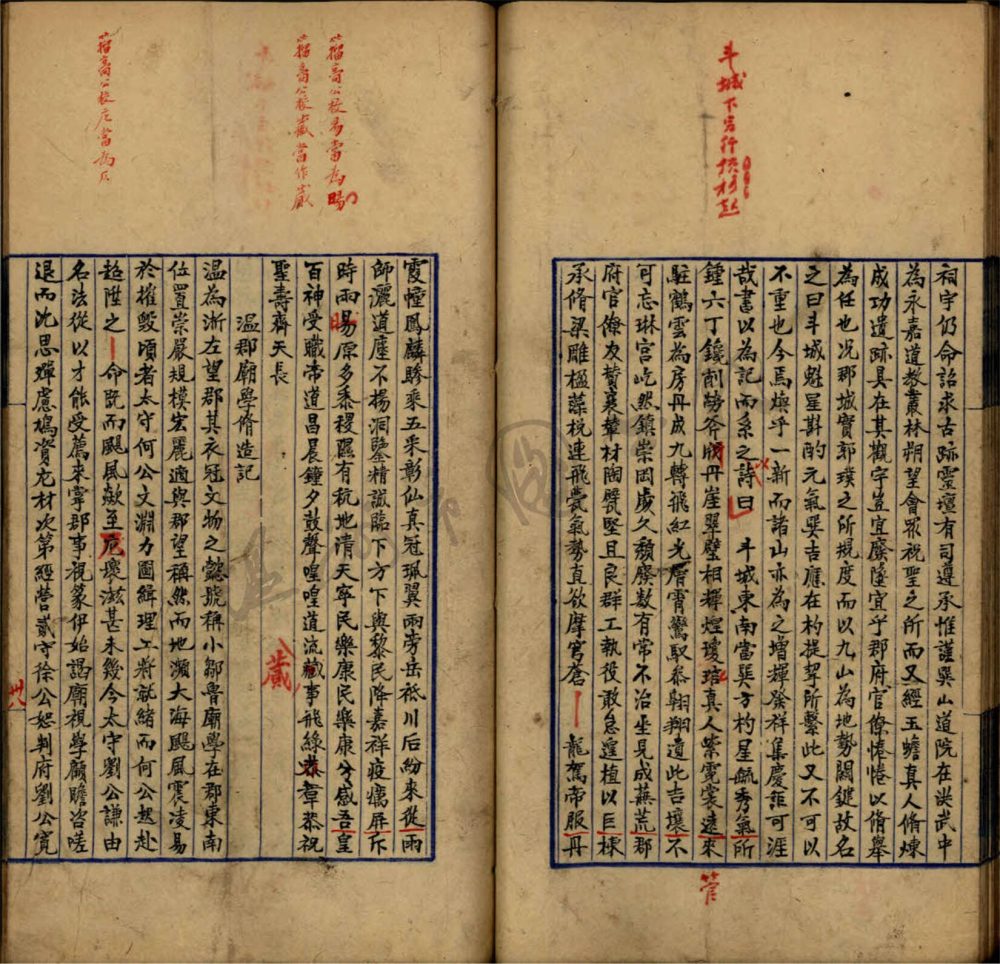 斗城下另行
祠宇仍命詔求古跡靈壇有司遵承惟謹巽山道院在洪武中
為永嘉道教叢林朔望會眾祝聖之所而又經玉蟾真人脩煉
成功遺跡具在其觀宇豈宜廢隳宜乎郡府官僚惓惓以脩舉
為任也况郡城實郭璞之所規度而以九山為地勢關鍵故名
之曰斗城魁星斟酌元氣巽吉應在杓提挈所繫此又不可以
不重也今焉煥乎一新而諸山亦為之增輝發祥集慶詎可涯
哉書以為記而系之詩曰 斗城東南當巽方杓星毓秀氣所
鍾六丁鑱削勞斧戕丹崖翠壁相輝煌瓊琯真人紫霓裳遠來
駐鶴雲為房丹成九轉飛紅光層霄鸞馭恭翱翔遺此吉壤不
可忘琳宮屹然鎮崇岡歲久頹廢數有常不治坐見成蕪荒郡
府官僚友贊襄鞏材陶甓堅且良群工執役敢怠遑植以巨棟
承脩梁雕楹藻梲連飛甍氣勢直欲摩穹蒼 龍駕帝服丹
菅
霞幢鳳麟驂乘五采彰仙真冠珮翼兩旁岳祗川后紛來從雨
師灑道塵不揚洞鑒精誠臨下方下與黎民降嘉祥疫癘屏斥
時雨暘原多黍稷隰有秔地清天寧民樂康民樂康兮感吾皇
百神受職帝道昌晨鐘夕鼓聲喤喤道流蕆事飛綠恭羣恭祝
聖壽齊天長
溫郡廟學脩造記
溫為浙左望郡其衣冠文物之懿號稱小鄒魯廟學在郡東南
位置崇嚴規模宏麗適與郡望稱然而地瀕大海颶風震凌易
於摧毀頃者太守何公文淵力圖緝理工將就緒而何公趂赴
超陞之 命既而颶風歘至厄壞滋甚未幾今太守劉公謙由
名法從以才能受薦來寧郡事視篆伊始謁廟視學顧瞻咨嗟
退而沈思殫慮鳩資尤材次第經營貳守徐公恕判府劉公寬
籀高公校易當為暘
籀高公校蕆當作蕆
籀高公校厄當為
蕆
卅八